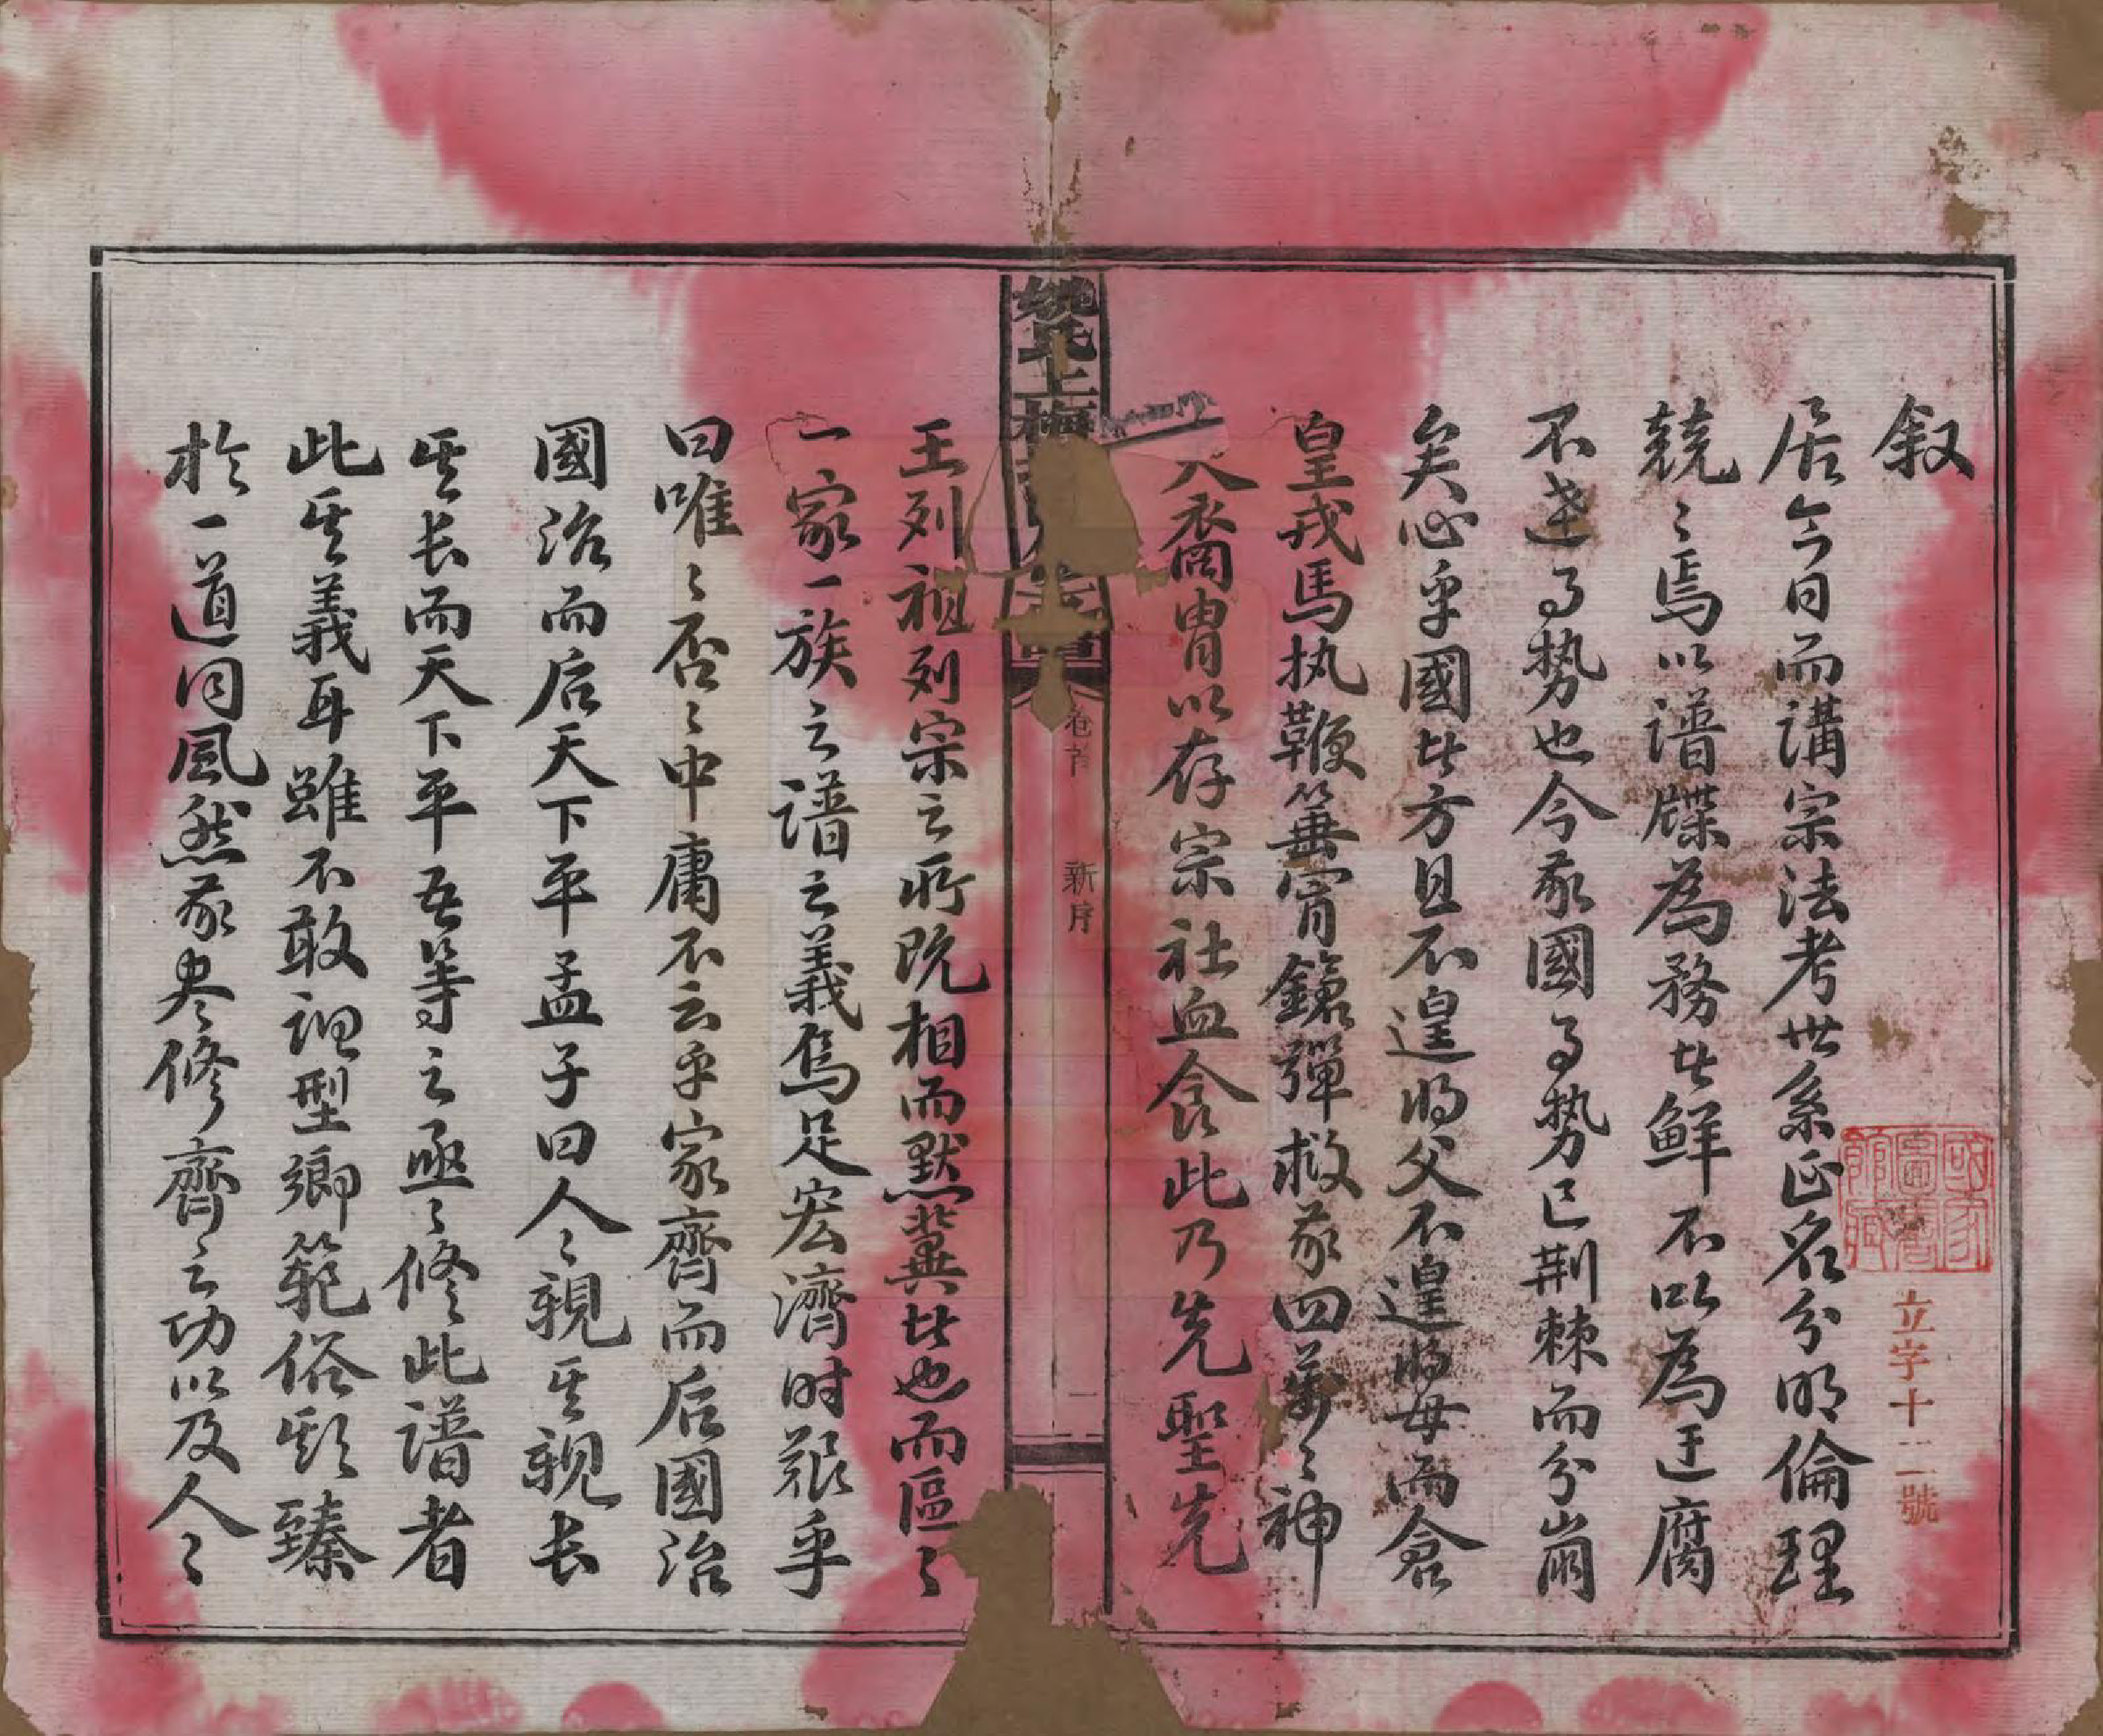 叙
居今日而講宗法考世系正名分明倫理
兢〻焉以譜牒為務者鮮不以為迂腐
不達了势也今我國了势已荆棘而分崩
矣心乎國者方且不遑將父不遑將母而倉
皇戎馬执鞭箠甯鎗彈救我四萬〻神
裔胄以存宗社血食此乃先聖先
王列祖列宗之所既相而默冀者也而區〻
一家一族之譜之義烏足宏濟时艱乎
曰唯〻否〻中庸不云乎家齊而后國治
國治而后天下平孟子曰人〻親其親长
其长而天下平吾等之亟〻修此譜者
此其義耳雖不敢詡型鄉範俗臻
於一道同風然我盡修齊之功以及人〻
姚氏上梅
譜
卷首
新序
一
國家圖書館藏
立字十二號